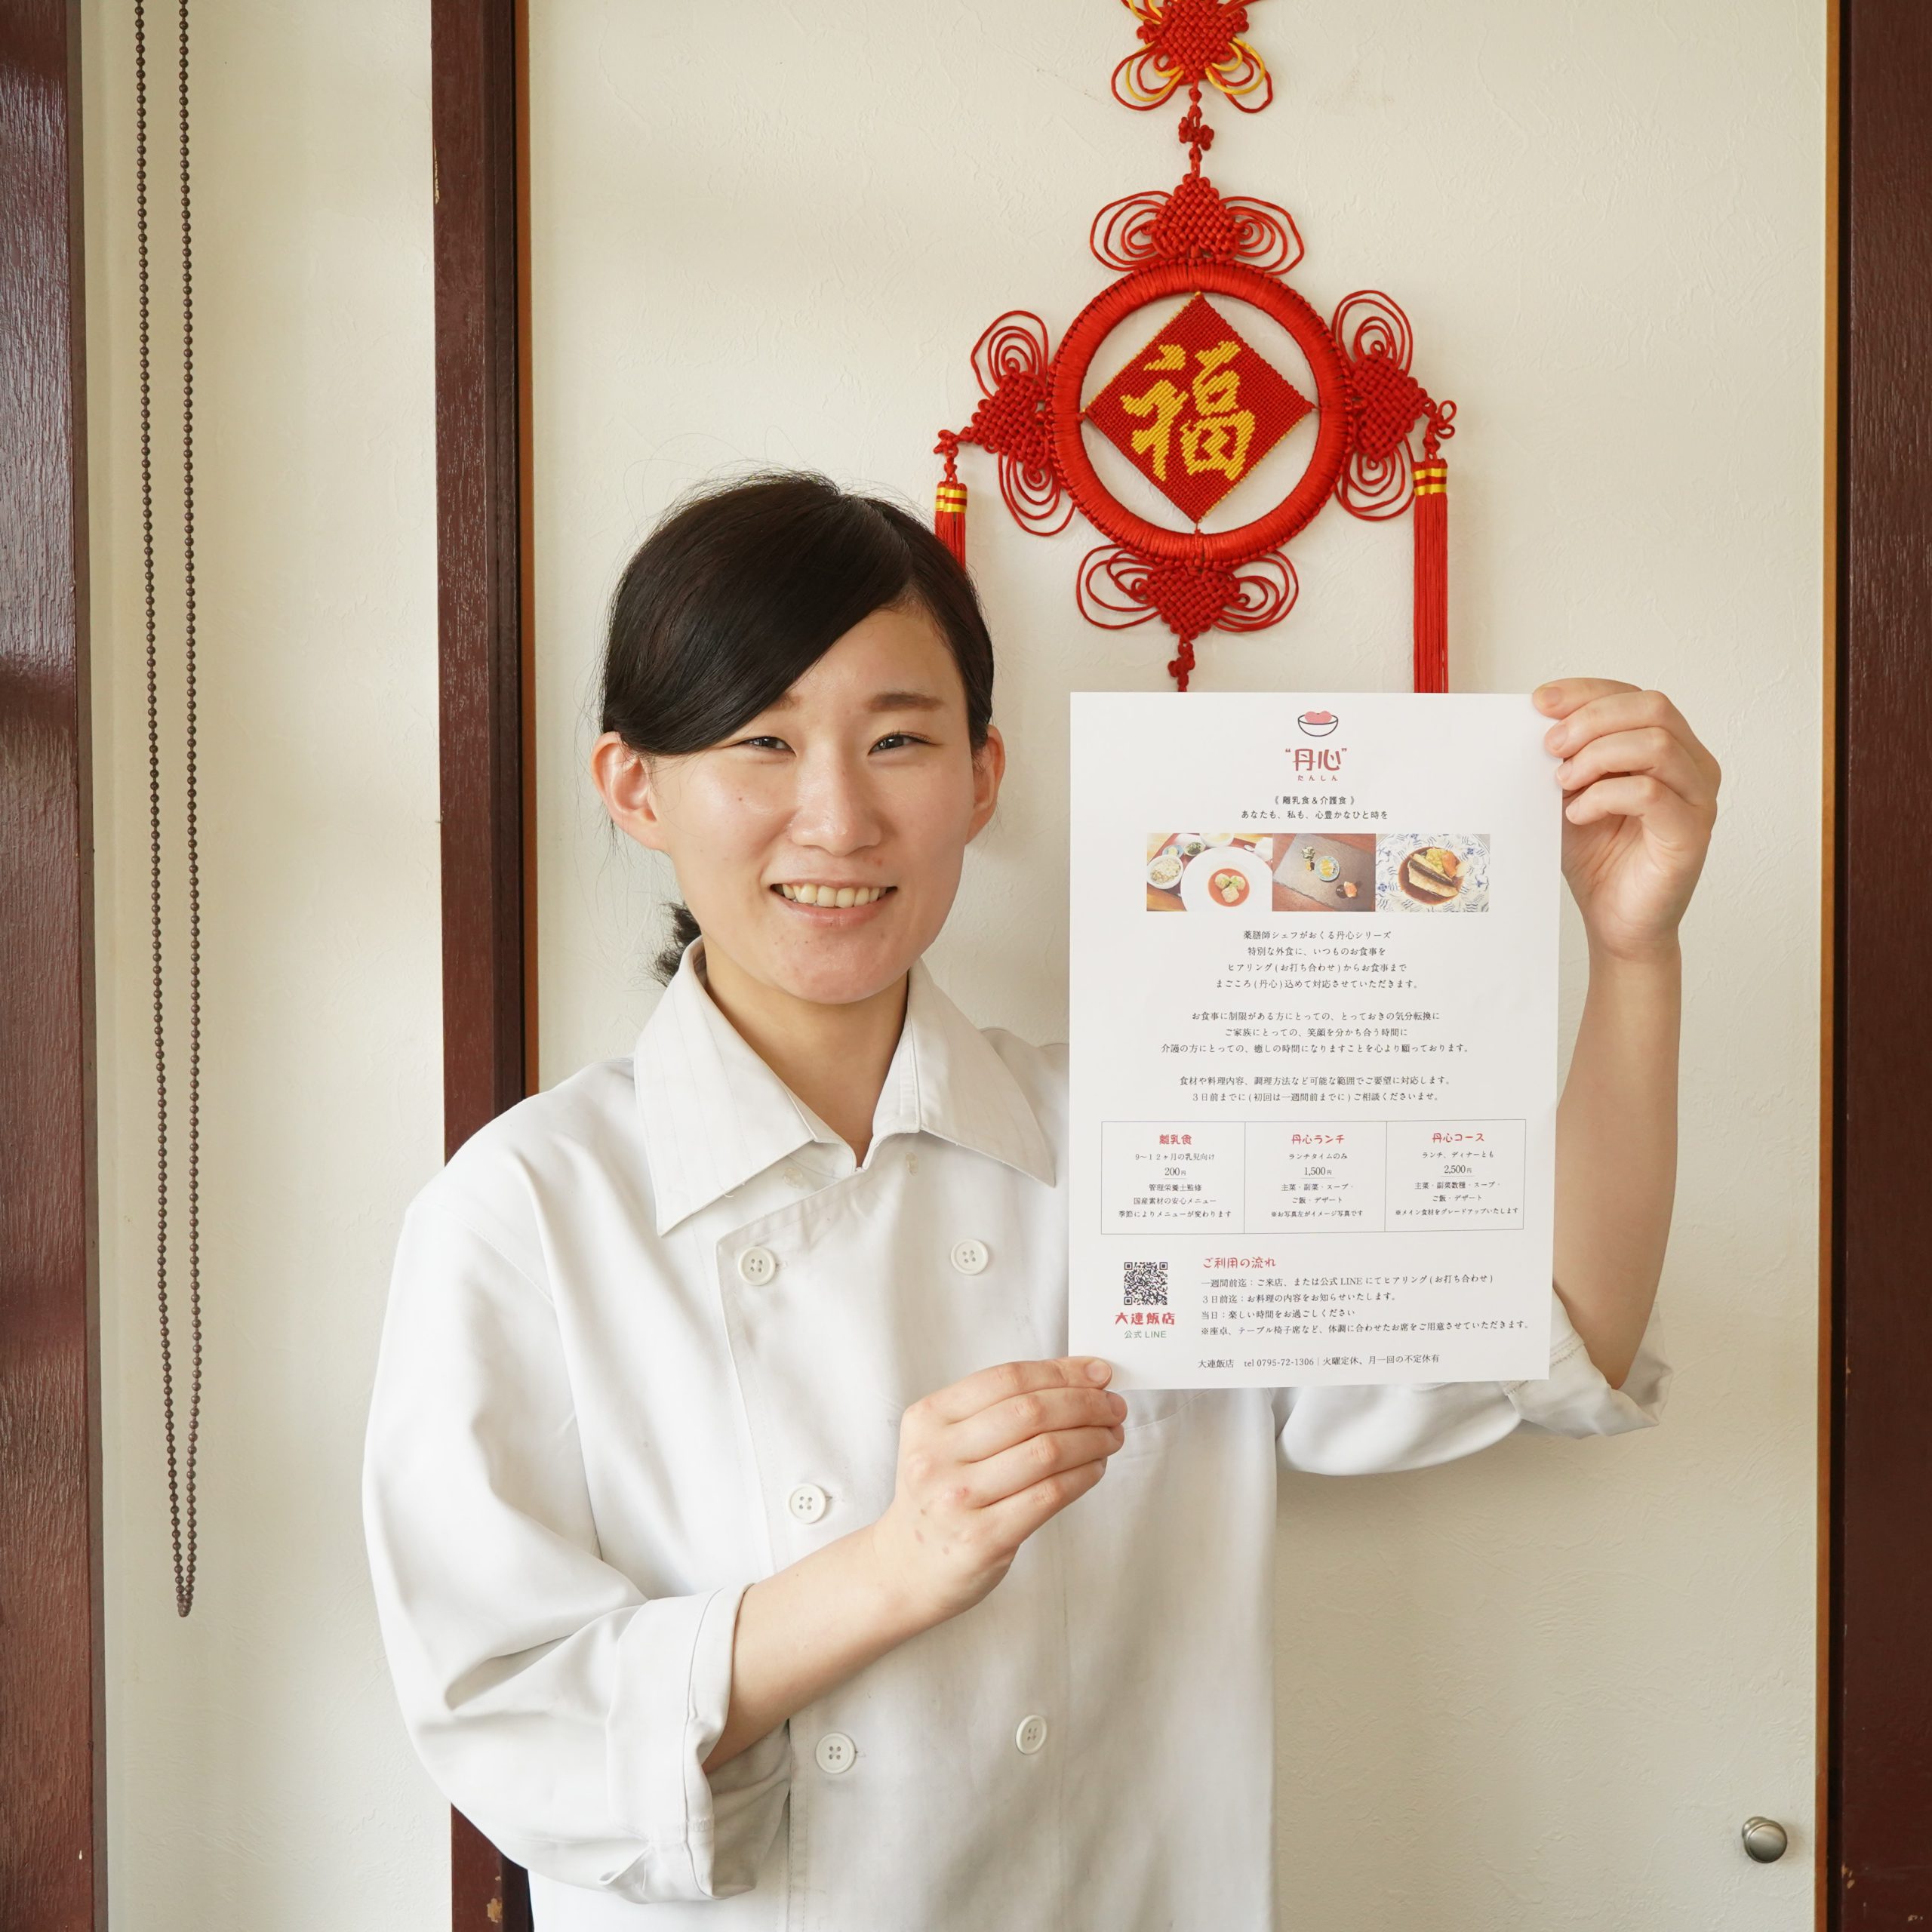 福
“丹心”
たんしん
《 離乳食＆介護食 》
あなたも、私も、心豊かなひと時を
薬膳師シェフがおくる丹心シリーズ
特別な外食に、いつものお食事を
ヒアリング(お打ち合わせ)からお食事まで
まごころ(丹心)込めて対応させていただきます。
お食事に制限がある方にとっての、とっておきの気分転換に
ご家族にとっての、笑顔を分かち合う時間に
介護の方にとっての、癒しの時間になりますことを心より願っております。
食材や料理内容、調理方法など可能な範囲でご要望に対応します。
３日前までに(初回は一週間前までに)ご相談くださいませ。
離乳食
9〜１２ヶ月の乳児向け
200円
管理栄養士監修
国産素材の安心メニュー
季節によりメニューが変わります
丹心ランチ
ランチタイムのみ
1,500円
主菜・副菜・スープ・
ご飯・デザート
※お写真左がイメージ写真です
丹心コース
ランチ、ディナーとも
2,500円
主菜・副菜数種・スープ・
ご飯・デザート
※メイン食材をグレードアップいたします
大連飯店
公式 LINE
ご利用の流れ
一週間前迄：ご来店、または公式 LINE にてヒアリング(お打ち合わせ)
３日前迄：お料理の内容をお知らせいたします。
当日：楽しい時間をお過ごしください
※座卓、テーブル椅子席など、体調に合わせたお席をご用意させていただきます。
大連飯店　tel 0795-72-1306｜火曜定休、月一回の不定休有